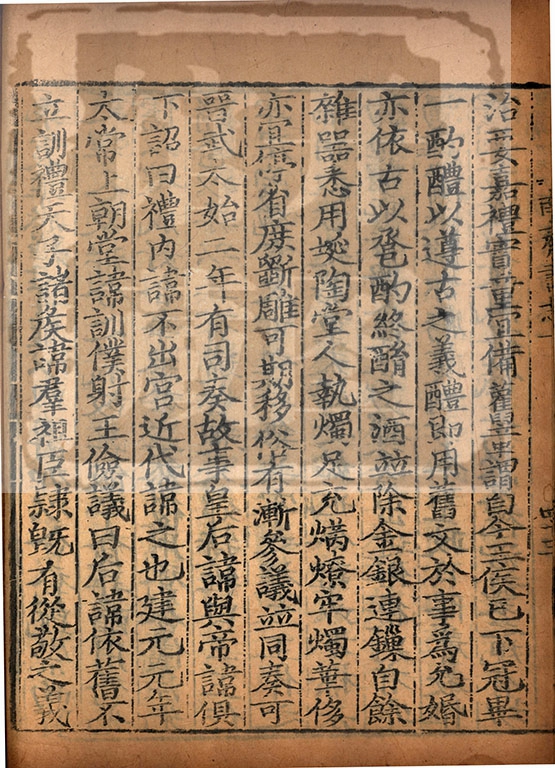 治要嘉禮實重宜備舊章謂自今王侯已下冠畢
一酌醴以遵古之義醴即用舊文於事為允婚
亦依古以卺酌終酳之酒並除金銀連鏁自餘
雜器悉用埏陶堂人執燭足充爟燎牢燭華侈
亦宜停省庶斲雕可期移俗有漸參議並同奏可
晉武太始二年有司奏故事皇后諱與帝諱俱
下詔曰禮內諱不出宮近代諱之也建元元年
太常上朝堂諱訓僕射王儉議曰后諱依舊不
立訓禮天子諸侯諱羣祖臣隸旣有從敬之義